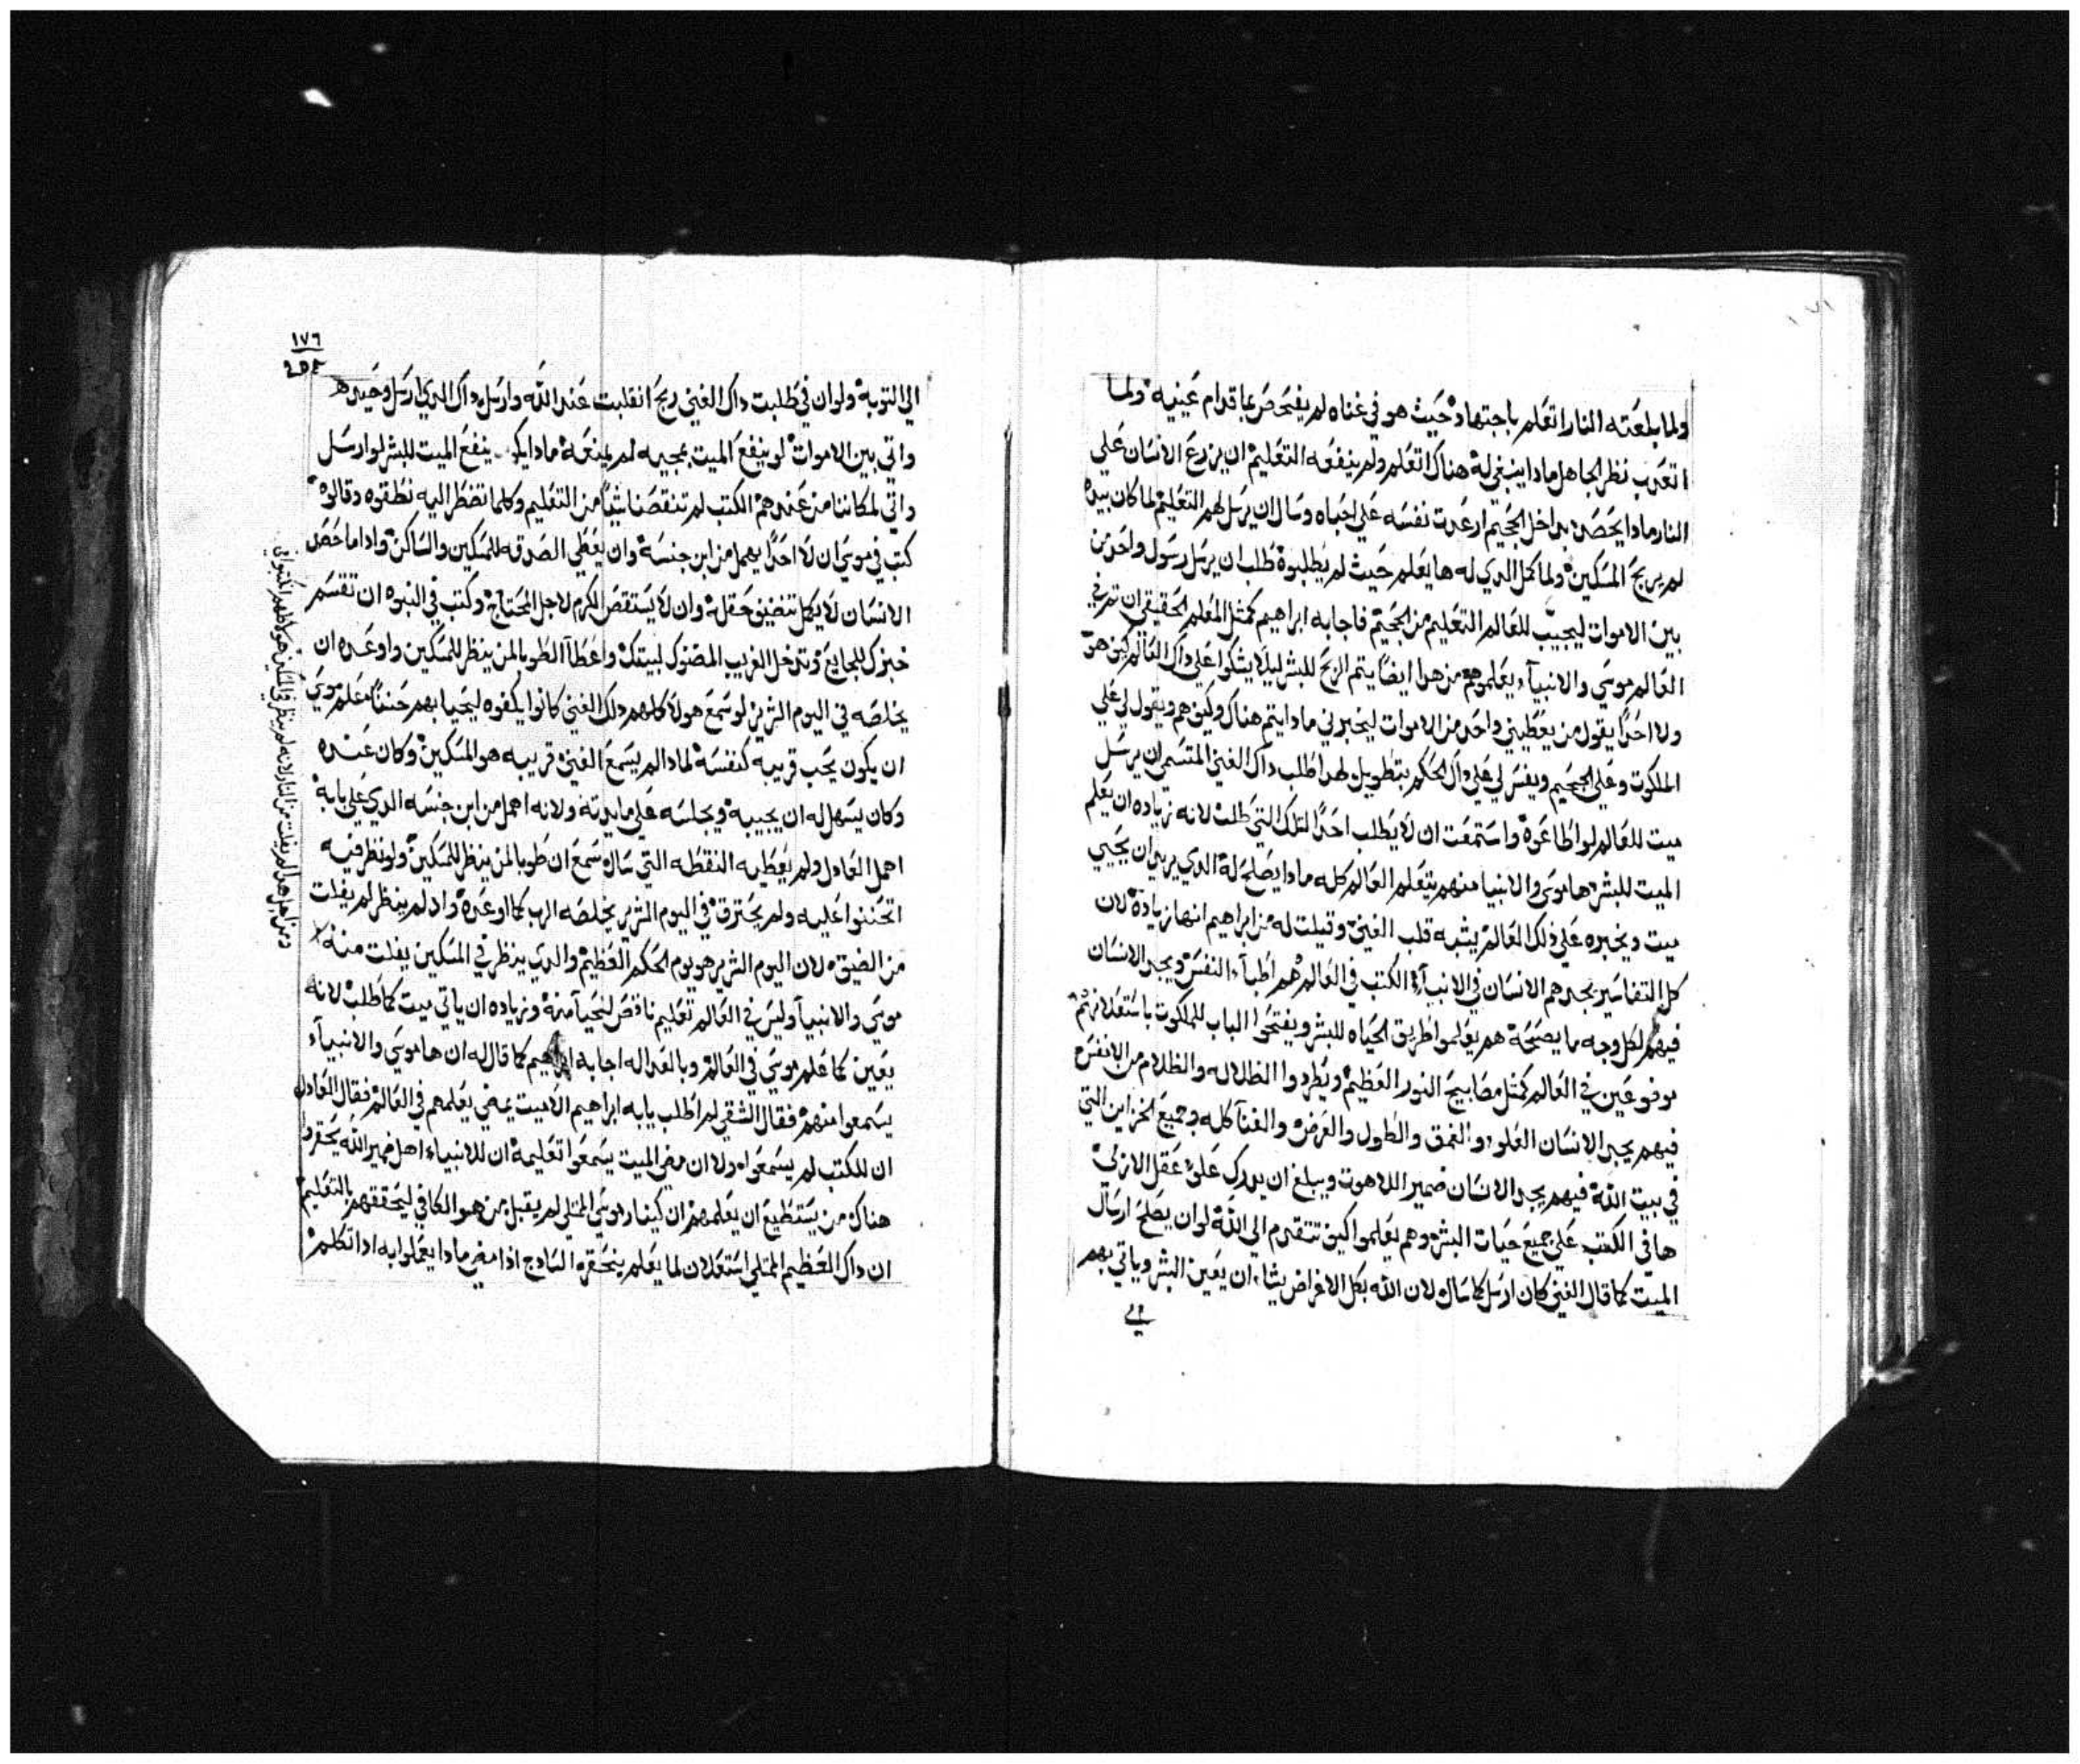 ولما بلعته النار اتعلم باجتهاد حيث هو في غناه لم يفتحص بما قدام عينيه ولما
اتعدب نظر الجاهل مادا ينبغي له هناك اتعلم ولم ينفعه التعليم ان يزرع الانسان علي
النار مادا يحصد بداخل الجحيم ارعدت نفسه علي احباه وسال ان يرسل لهم التعليم لما كان بيده
لم يريح المسكين ولما كمل الدي له ها يعلم حيث لم يطلبوه طلب ان يرسل رسول واحد من
بين الاموات ليجيب للعالم التعليم من الجحيم فاجابه ابراهيم كمثل المعلم الحقيقي ان تم في
العالم موسي والانبياء يعلموهم من هدا ايضا يتم الربح للبشر ليلا يشكوا علي داك العالم كيف هو
ولا احدا يقول من يعطيني واحد من الاموات ليخبرني مادا يتم هناك وكيف هم ويقول لي علي
الملكوت وعلي الجحيم ويفسر لي علي داك الحكم بتطويل لهدا طلب داك الغني المتسمي ان يرسل
ميت للعالم لو اطاعوه واستمعت ان لا يطلب احدا لتلك التي طلب لانه زياده ان يعلم
الميت للبشر ها موسي والانبيا منهم يتعلم العالم كله مادا يصلح له الدي يريد ان يجيي
ميت ويخبره علي دلك العالم يشبه قلب الغني وقيلت له من ابراهيم انها زيادة لان
كل التفاسير يجدهم الانسان في الانبياء الكتب في العالم هم اطباء النفس ويجد الانسان
فيهم لكل وجه ما يصحة هم يعلموا طريق الحياه للبشر ويفتحوا الباب للملكوت باستعلانهم
موفوعين في العالم كمثل مصابيح النور العظيم ويطردوا الظلاله والظلام من الانفس
فيهم يجد الانسان العلو والعمق والطول والعرض والغنا كله وجميع الخزاين التي
في بيت الله فيهم يجد الانسان ضمير اللاهوت ويبلغ ان يدرك علو عقل الازلي
ها في الكتب علي جميع حيات البشر وهم يعلموا كيف تتقدم الي الله لو ان يصلح ارسال
الميت كما قال الغني كان ارسل كما سال لان الله بكل الاغراض يشاء ان يعين البشر وياتي بهم
١٧٦
الي التوبة ولو ان في طلبت داك الغني ربح انقلبت عند الله وارسل داك الدي ارسل وحيده
واتي بين الاموات لو ينفع الميت بمجيه لم يمنعه مادا ينفع الميت للبشر لو ارسل
واتي لمكاننا من عندهم الكتب لم تنقصنا شيا من التعليم وكلما تضطر اليه نطقوه وقالوه
كتب في موسي ان لا احدا يهمل من ابن جنسه وان يعطي الصدقه للمسكين والساكن وادا ما حصد
الانسان لا يكمل تنضيف حقله وان لا يستقصد الكرم لاجل المحتاج وكتب في النبوه ان تقسم
خبزك للجايع وتدخل الغريب المضنوك لبيتك واعطا الطوبا لمن ينظر للمسكين واوعده ان
يخلصه في اليوم الشرير لو سمع هولا كلهم دلك الغني كانوا يكفوه ليحيا بهم حسنا معلم موسي
ان يكون يحب قريبه كنفسه لمادا لم يسمع الغني قريبه هو المسكين وكان عنده
وكان يسهل له ان يجيبه ويجلسه علي مايدته ولانه اهمل من ابن جنسه الدي علي بابه
اهمل العادل ولم يعطيه النقطه التي ساله سمع ان طوبا لمن ينظر للمسكين ولو نظر فيه
اتحننوا عليه ولم يحترق في اليوم الشرير يخلصه الرب كما اوعده واد لم ينظر لم يفلت
من الضيق لان اليوم الشرير هو يوم الحكم العظيم والدي ينظر في المسكين يفلت منه
موسي والانبيا وليس في العالم تعليم ناقص لنحيا منه وزياده ان ياتي ميت كما طلب لانه
يعين كما علم موسي في العالم وبالعداله اجابه ابراهيم كما قال له ان ها موسي والانبياء
يسمعوا منهم فقال الشقي لم اطلب يابه ابراهيم الا ميت يمضي يعلمهم في العالم فقال العادل
ان للكتب لم يسمعوا ولا ان مضي الميت يسمعوا تعليمه ان للانبياء اهل ضمير الله يحقروا
هناك من يستطيع ان يعلمهم ان كينار موسي الممتلي لم يقبل من هو الكافي ليحققهم بالتعليم
ان داك العظيم الممتلي استعلان لما يعلم ينحقره السادج ادا مضي مادا يعملوا به ادا تكلم